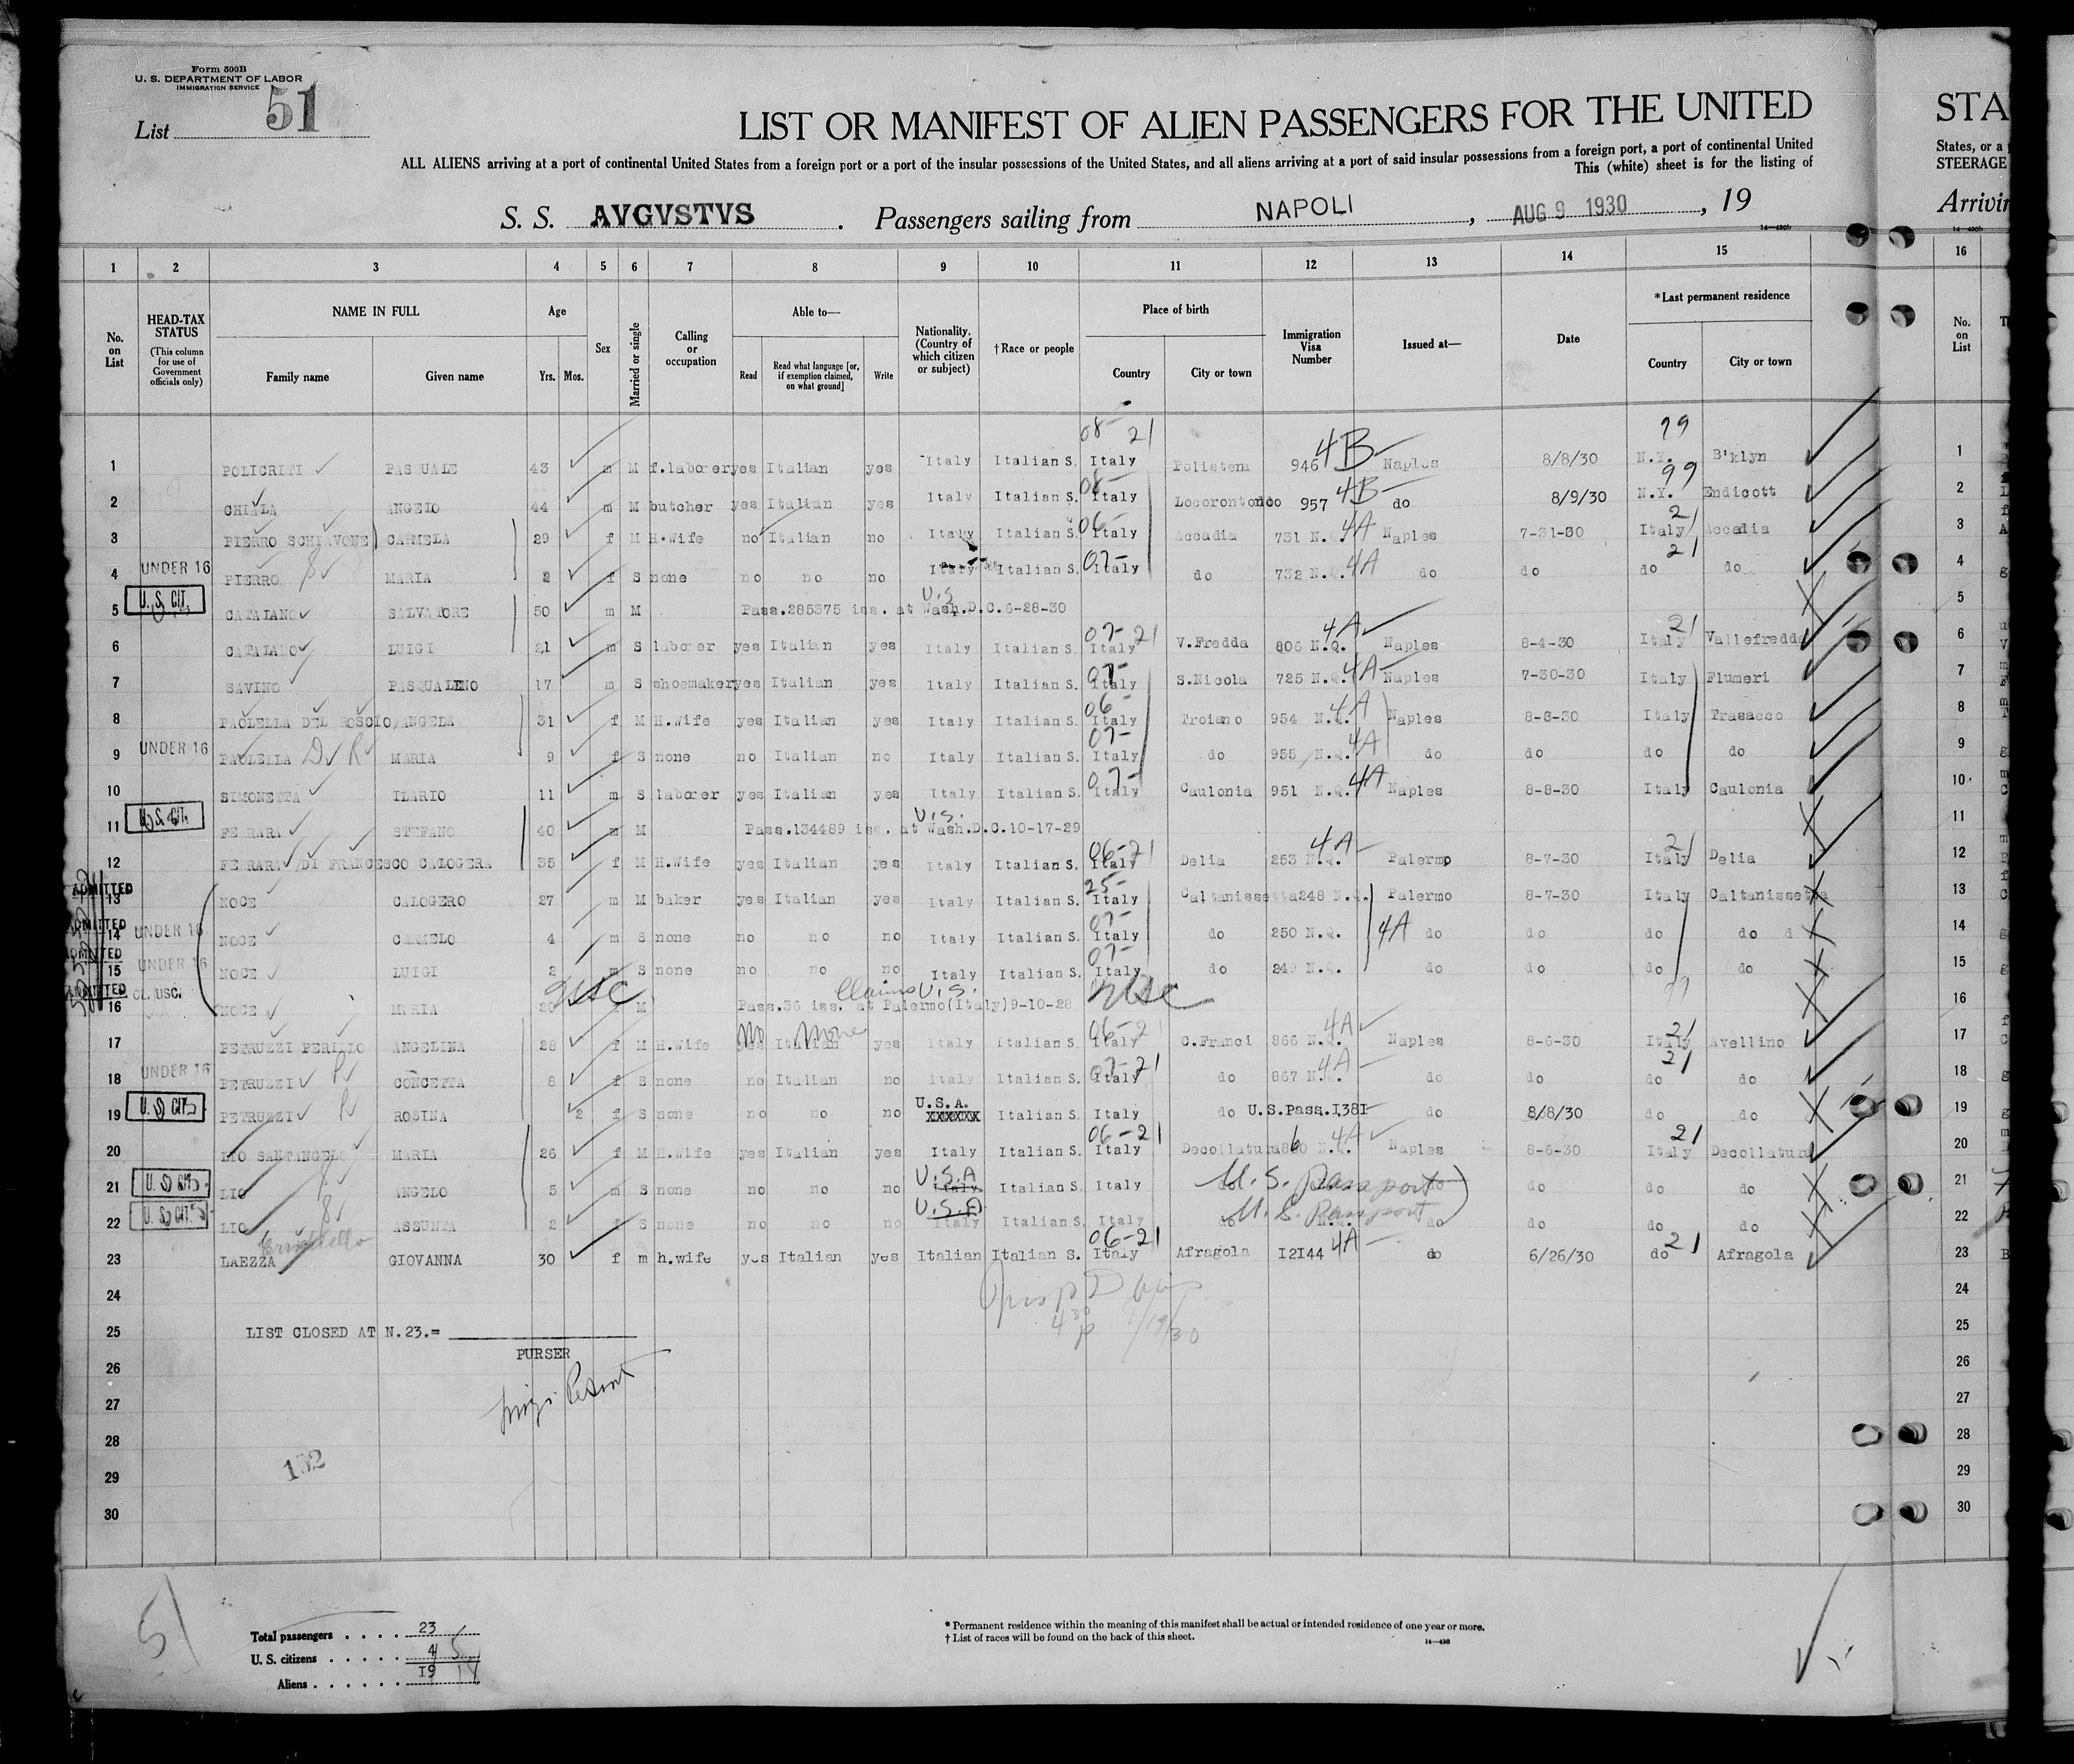 Form 500B
U. S. DEPARTMENT OF LABOR
IMMIGRATION SERVICE
List 51
LIST OR MANIFEST OF ALIEN PASSENGERS FOR THE UNITED STA
ALL ALIENS arriving at a port of continental United States from a foreign port or a port of the insular possessions of the United States, and all aliens arriving at a port of said insular possessions from a foreign port, a port of continental United States, or a
This (white) sheet is for the listing of STEERAGE
S. S. AVGVSTVS. Passengers sailing from NAPOLI, AUG 9 1930, 19 Arrivin
1 2 3 4 5 6 7 8 9 10 11 12 13 14 15 16
No. on List HEAD-TAX STATUS (This column for use of Government officials only) NAME IN FULL Family name Given name Age Yrs. Mos. Sex Married or single Calling or occupation Able to— Read Read what language [or, if exemption claimed, on what ground] Write Nationality. (Country of which citizen or subject) †Race or people Place of birth Country City or town Immigration Visa Number Issued at— Date *Last permanent residence Country City or town No. on List
08- 21 99
1 POLICRITI PASQUALE 43 m M f.laborer yes Italian yes Italy Italian S. Italy Polistena 946 4B Naples 8/8/30 N.Y. B'klyn 1
2 CHIALA ANGELO 44 m M butcher yes Italian yes Italy Italian S. 08- Italy Locorotondo 957 4B do 8/9/30 N.Y. 99 Endicott 2
3 PIERRO SCHIAVONE CARMELA 29 f M H.Wife no Italian no Italy Italian S. 06- Italy Accadia 731 N.Q. 4A Naples 7-31-30 Italy 21 Accadia 3
4 UNDER 16 PIERRO S MARIA 2 f S none no no no Italy Italian S. 07- Italy do 732 N.Q. 4A do do do 21 do 4
5 U.S. CIT. CATALANO SALVATORE 50 m M Pass.285375 iss. at Wash.D.C.6-28-30 U.S. 5
6 CATALANO LUIGI 21 m S laborer yes Italian yes Italy Italian S. 07-21 Italy V.Fredda 806 N.Q. 4A Naples 8-4-30 Italy 21 Vallefredda 6
7 SAVINO PASQUALINO 17 m S shoemaker yes Italian yes Italy Italian S. 07- Italy S.Nicola 725 N.Q. 4A Naples 7-30-30 Italy Flumeri 7
8 PAOLELLA DEL ROSCIO ANGELA 31 f M H.Wife yes Italian yes Italy Italian S. 06- Italy Troiano 954 N.Q. 4A Naples 8-8-30 Italy Trasacco 8
9 UNDER 16 PAOLELLA D R MARIA 9 f S none no Italian no Italy Italian S. 07- Italy do 955 N.Q. 4A do do do do 9
10 SIMONETTA ILARIO 11 m S laborer yes Italian yes Italy Italian S. 07- Italy Caulonia 951 N.Q. 4A Naples 8-8-30 Italy Caulonia 10
11 U.S. CIT. FERRARA STEFANO 40 m M Pass.134489 iss. at Wash.D.C.10-17-29 U.S. 11
12 FERRARA DI FRANCESCO CALOGERA 35 f M H.Wife yes Italian yes Italy Italian S. 06-21 Italy Delia 253 N.Q. 4A Palermo 8-7-30 Italy 21 Delia 12
ADMITTED 13 NOCE CALOGERO 27 m M baker yes Italian yes Italy Italian S. 25- Italy Caltanissetta 248 N.Q. Palermo 8-7-30 Italy Caltanissetta 13
ADMITTED 14 UNDER 16 NOCE CARMELO 4 m S none no no no Italy Italian S. 07- Italy do 250 N.Q. 4A do do do do 14
ADMITTED 15 UNDER 16 NOCE LUIGI 2 m S none no no no Italy Italian S. 07- Italy do 249 N.Q. do do do do 15
ADMITTED 16 CL. USC. NOCE MARIA 20 USC f M Pass.36 iss. at Palermo(Italy)9-10-28 Claims U.S. USC 16
17 PETRUZZI PERILLO ANGELINA 28 f M H.Wife yes no Italian none yes Italy Italian S. 06-2 Italy C.Franci 866 N.Q. 4A Naples 8-6-30 Italy 21 Avellino 17
18 UNDER 16 PETRUZZI P CONCETTA 8 f S none no Italian no Italy Italian S. 07-21 Italy do 867 N.Q. 4A do do do 21 do 18
19 U.S. CIT. PETRUZZI P ROSINA 2 f S none no no no U.S.A. XXXXXX Italian S. Italy do U.S.Pass.I38I do 8/8/30 do do 19
20 LIO SANTANGELO MARIA 26 f M H.Wife yes Italian yes Italy Italian S. 06-21 Italy Decollatura 860 N.Q. 4A Naples 8-6-30 Italy 21 Decollatura 20
21 U.S. CIT. LIO S ANGELO 5 m S none no no no U.S.A Italy Italian S. Italy U.S. Passport do do do do 21
22 U.S. CIT. LIO S ASSUNTA 2 f S none no no no U.S.A Italy Italian S. Italy do U.S. Passport do do do do 22
23 LAEZZA GIOVANNA 30 f m h.wife yes Italian yes Italian Italian S. 06-21 Italy Afragola I2I44 4A do 6/26/30 do 21 Afragola 23
24 24
25 LIST CLOSED AT N.23.= 25
PURSER
26 26
27 27
28 28
29 102 29
30 30
51
Total passengers 23
U. S. citizens 4 5
Aliens 19 18
* Permanent residence within the meaning of this manifest shall be actual or intended residence of one year or more.
† List of races will be found on the back of this sheet.